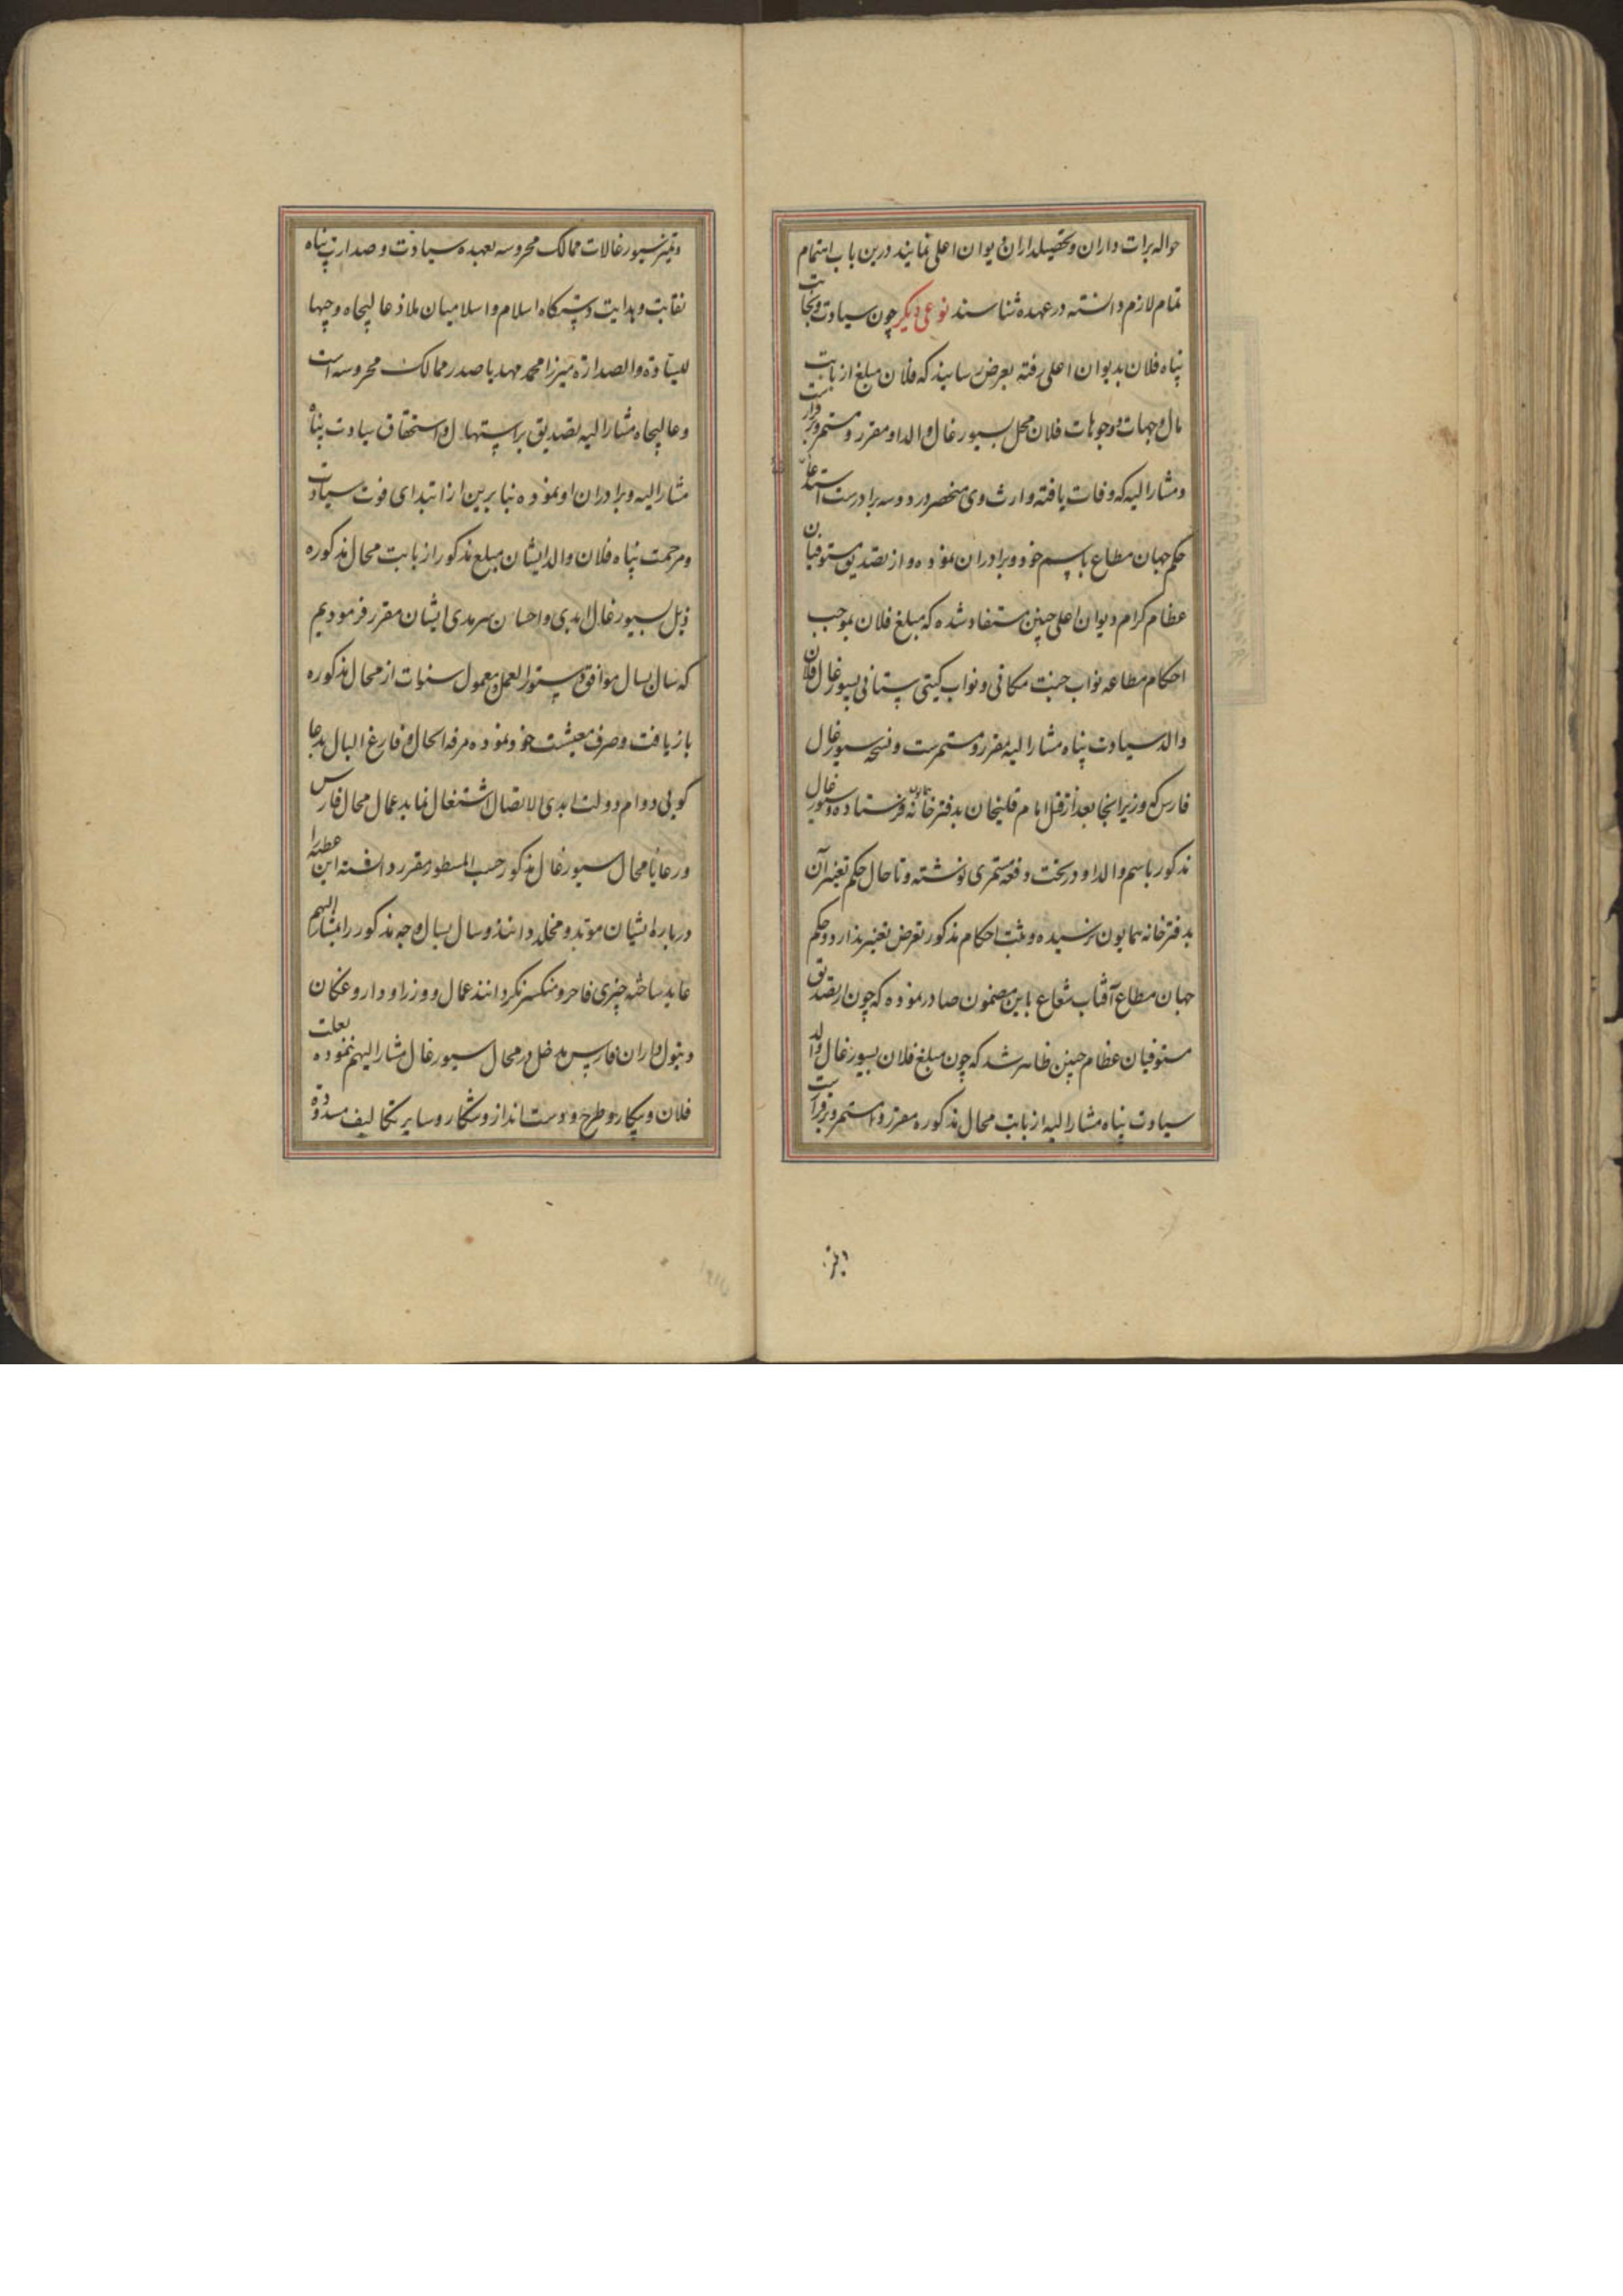 حواله برات داران و تحصیلداران دیوان اعلی نمایند درین باب اهتمام
تمام لازم دانسته در عهده شناسند نوعی دیگر چون سیادت و نجابت
پناه فلان بدیوان اعلی رفته بعرض رسانید که فلان مبلغ از بابت
مال و جهات و وجوهات فلان محل بسیورغال والد او مقرر و مستمر و برقرار است
و مشارالیه که وفات یافته وارث وی منحصر در دو سه برادر است استدعای
حکم جهان مطاع باسم خود و برادران نموده و از تصدیق مستوفیان
عظام کرام دیوان اعلی چنین مستفاد شده که مبلغ فلان بموجب
احکام مطاعه نواب جنت مکانی و نواب گیتی ستانی بسیورغال فلان
والد سیادت پناه مشارالیه مقرر و مستمرست و نسخه سیورغال
فارس که وزیر انجا بعد از قتل امام قلیخان بدفترخانه همایون فرستاده و سیورغال
مذکور باسم والد او در تحت وقعه مستمری نوشته و تا حال حکم تغییر آن
بدفترخانه همایون نرسیده و ثبت احکام مذکور تعرض تغییر ندارد و حکم
جهان مطاع آفتاب شعاع باین مضمون صادر نموده که چون از تصدیق
مستوفیان عظام چنین ظاهر شد که چون مبلغ فلان بسیورغال والد
سیادت پناه مشارالیه از بابت محال مذکوره مقرر و مستمر و برقرار است
و تغییر سیورغالات ممالک محروسه بعهده سیادت و صدارت پناه
نقابت و هدایت دستگاه اسلام و اسلامیان ملاذ عالیجاه وجیها
للسیادة والصدارة میرزا محمد مهدیا صدر ممالک محروسه است
و عالیجاه مشارالیه تصدیق بر استیهال و استحقاق سیادت پناه
مشارالیه و برادران او نموده بنابرین از ابتدای فوت سیادت
و مرحمت پناه فلان والد ایشان مبلغ مذکور از بابت محال مذکوره
ذیل بسیورغال ابدی و احسان سرمدی ایشان مقرر فرمودیم
که سال بسال موافق دستورالعمل و معمول سنوات از محال مذکوره
بازیافت و صرف معیشت خود نموده مرفه الحال و فارغ البال بدعا
گویی دوام دولت ابدی الاتصال اشتغال نماید عمال محال فارس
و رعایا محال سیورغال مذکور حسب المسطور مقرر دانسته این عطیه را
درباره ایشان مؤبد و مخلد دانند و سال بسال وجه مذکور را بمشارالیهم
عاید ساخته چیزی قاصر و منکسر نگردانند عمال و وزرا و داروغگان
و تیول داران فارس مدخل در محال سیورغال مشارالیهم ننموده بعلت
فلان و بیگار و طرح و دست انداز و شکار و سایر تکالیف مسدوده